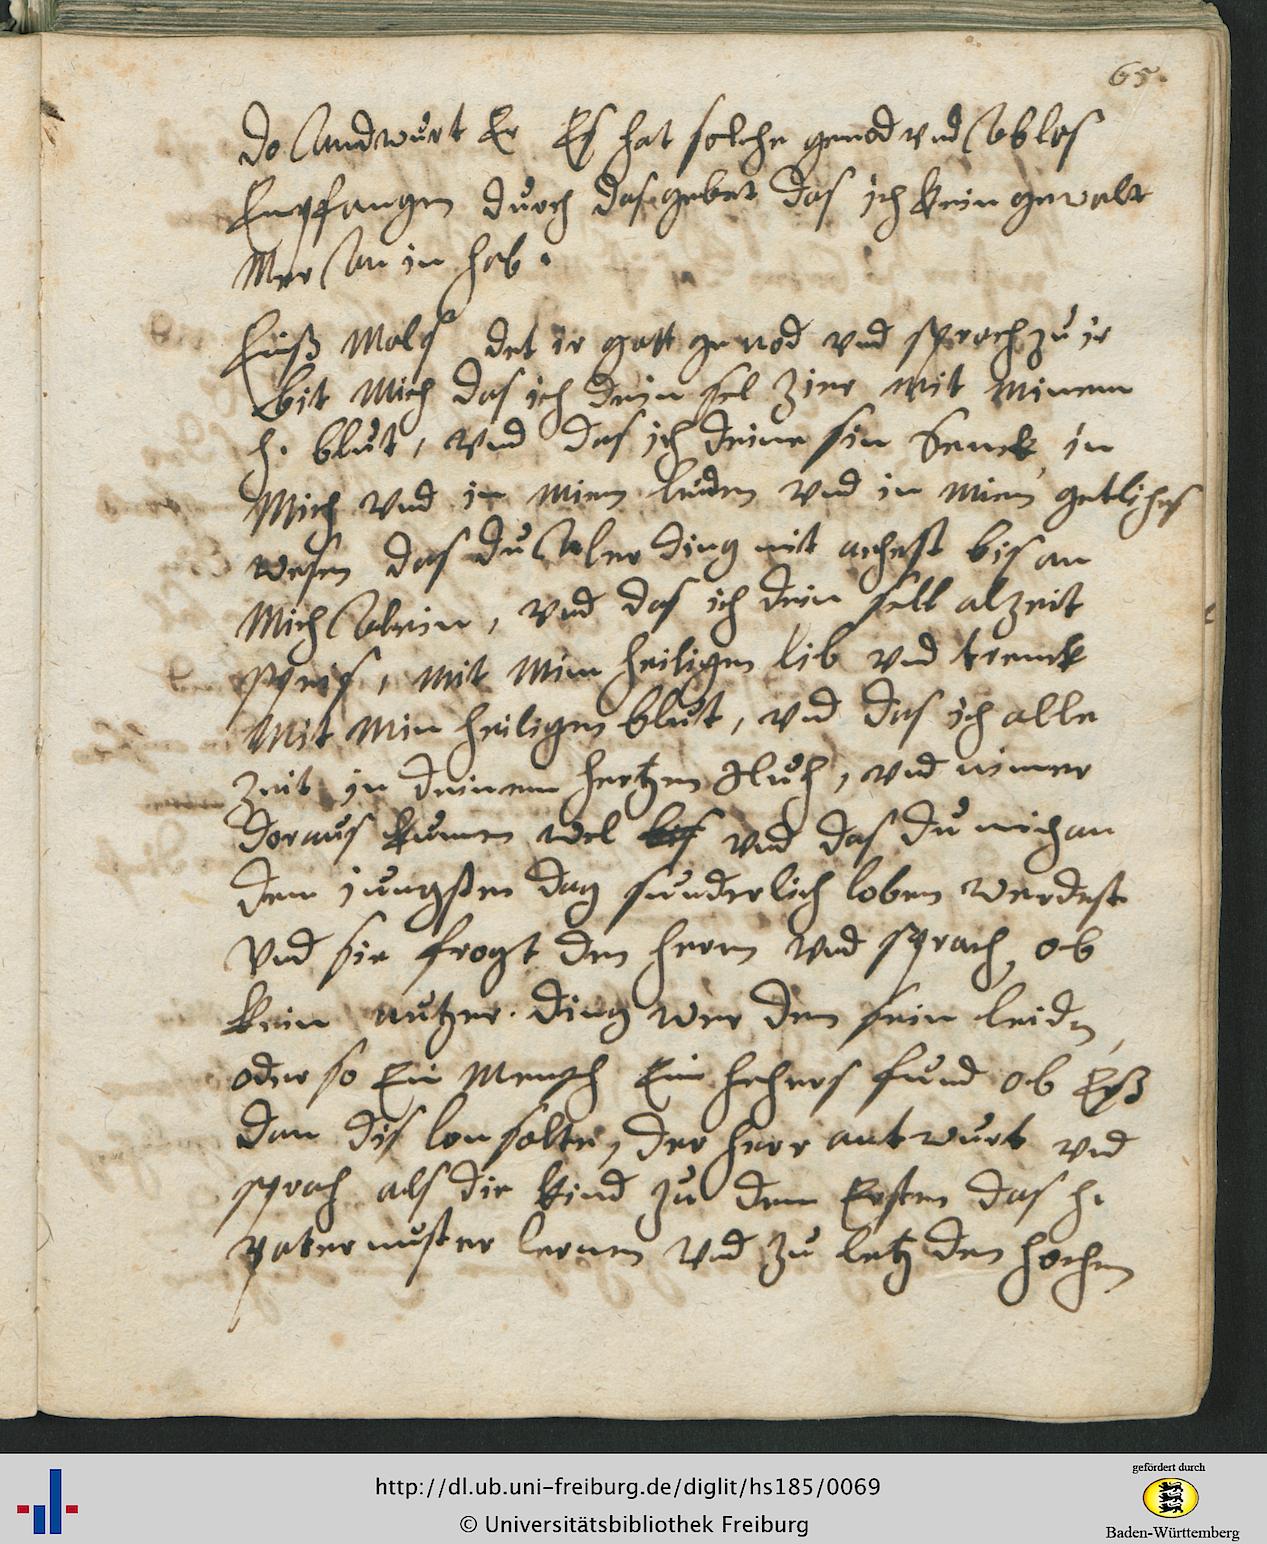 65.
do Andwurt Er Es hat solche genod vnd Ablos
Empfangen durch das gebet das ich kein gewalt
Mer An in hab.
Eins Mols det ir gott genod vnd sprach zu ir
bit Mich das ich dein sel zier mit minem
h. blut, vnd das ich deine sin senck in
Mich vnd in mien leiden vnd in mien getliches
wesen das du Aler ding nit achest bis an
Mich Alein, vnd das ich dein sell alzeit
speis, mit min heiligen lib vnd trenck
Mit Min heiligen blut, vnd das ich alle
zeit in deinem hertzen vnd nimer
doraus kumen wel vnd das du mich an
dem jungsten dag sunderlich loben werdest
Vnd sie frogt den herrn vnd sprach, ob
kein nutzer ding wer den sein leiden,
oder so Ein Mensch Ein hehers fund ob Ers
dan dis lon solte, der herr antwurt vnd
sprach als die kind zu dem Ersten das h.
paternuster lernen vnd zu letz den hochen
http://dl.ub.uni-freiburg.de/diglit/hs185/0069
© Universitätsbibliothek Freiburg
gefördert durch
Baden-Württemberg